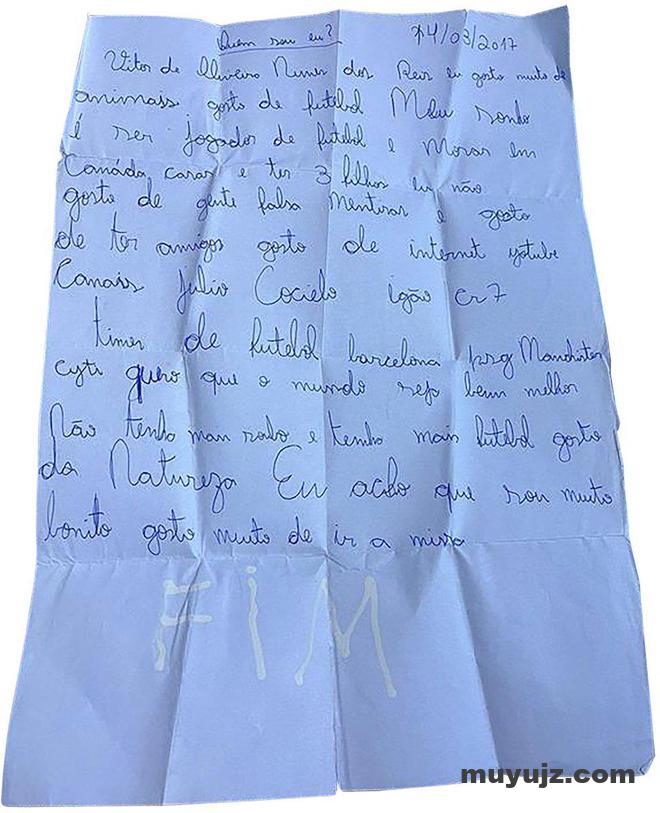 Quem sou eu? 14/03/2017
Vitor de Oliveira Nunes dos Reis eu gosto muito de
animais gosto de futebol Meu sonho
é ser jogador de futebol e Morar em
Canáda casar e ter 3 filhos eu não
gosto de gente falsa mentiras e gosto
de ter amigos gosto de internet yotube
Canais Julio Cocielo igão cr7
times de futebol barcelona psg Manchister
cyti quero que o mundo seja bem melhor
Não tenha mais e tenha mais futebol gosto
da Natureza Eu acho que sou muito
bonito gosto muito de ir a missa
FIM
muyujz.com